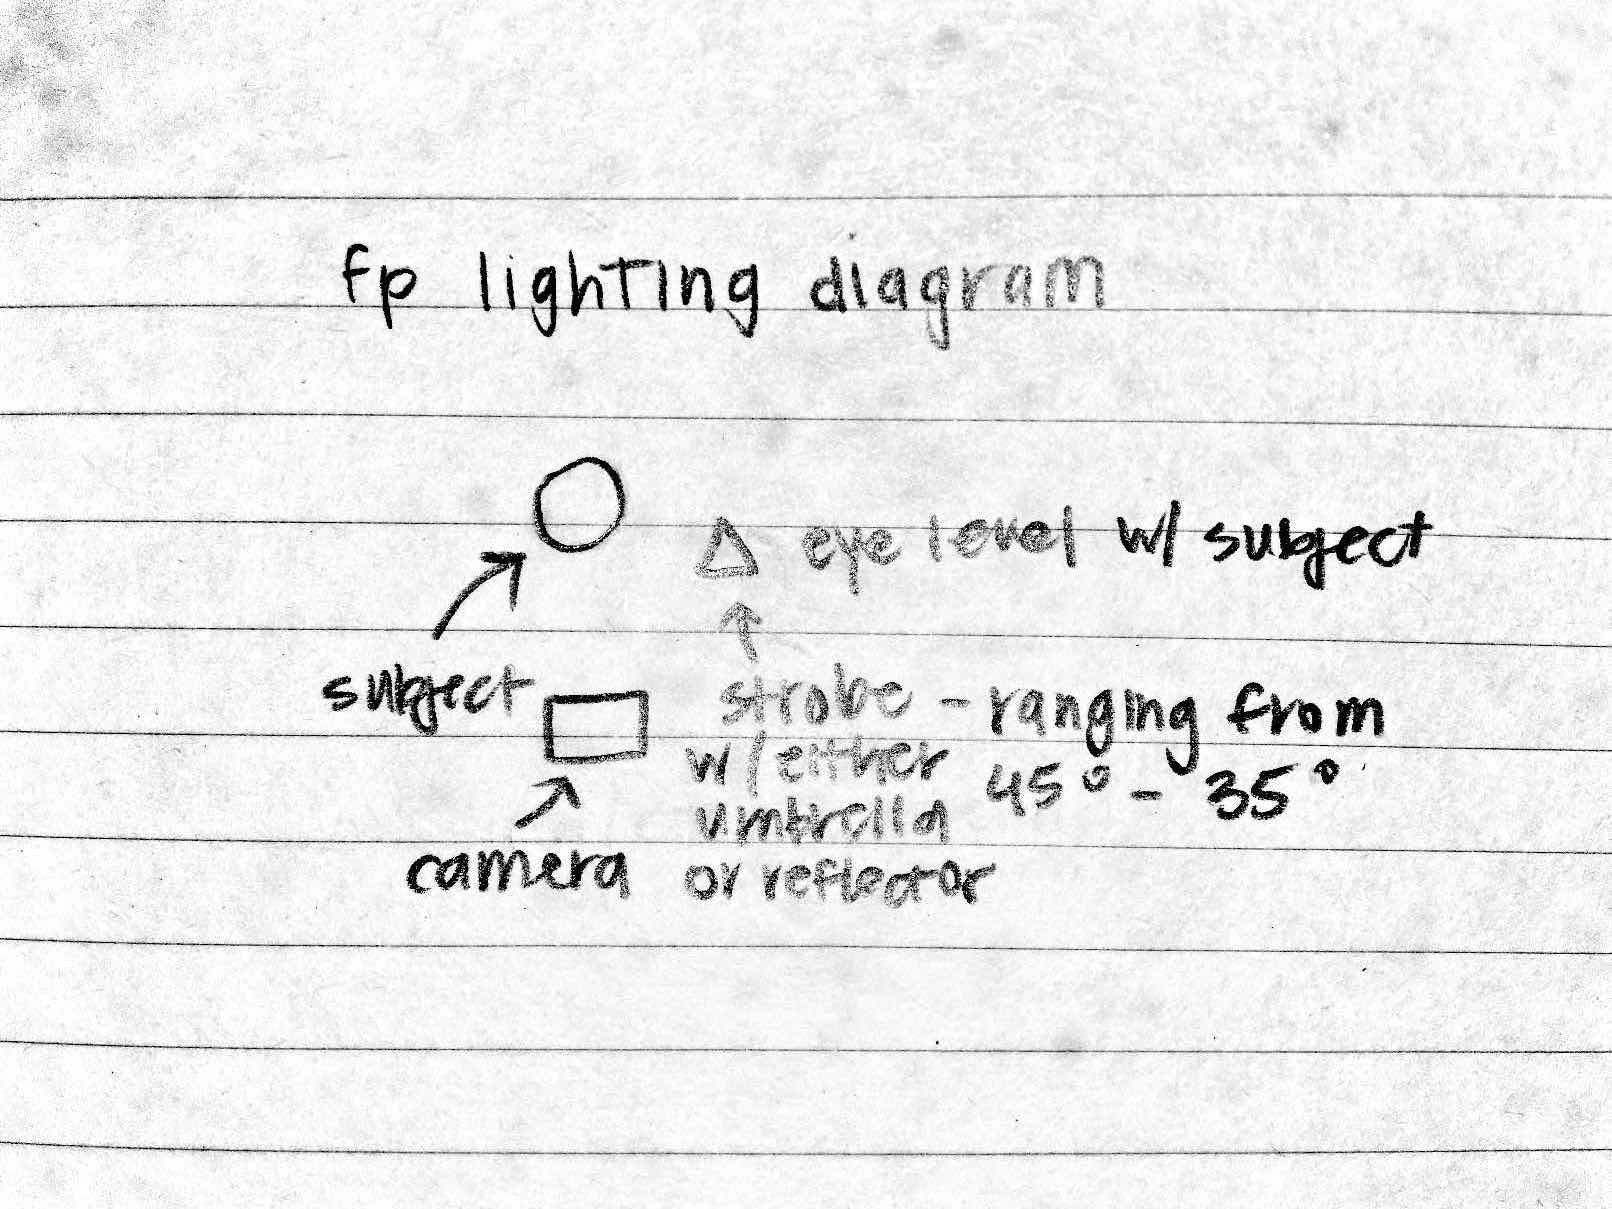 fp lighting diagram
eye level w/ subject
subject
strobe - ranging from
w/either 45° - 35°
umbrella
or reflector
camera